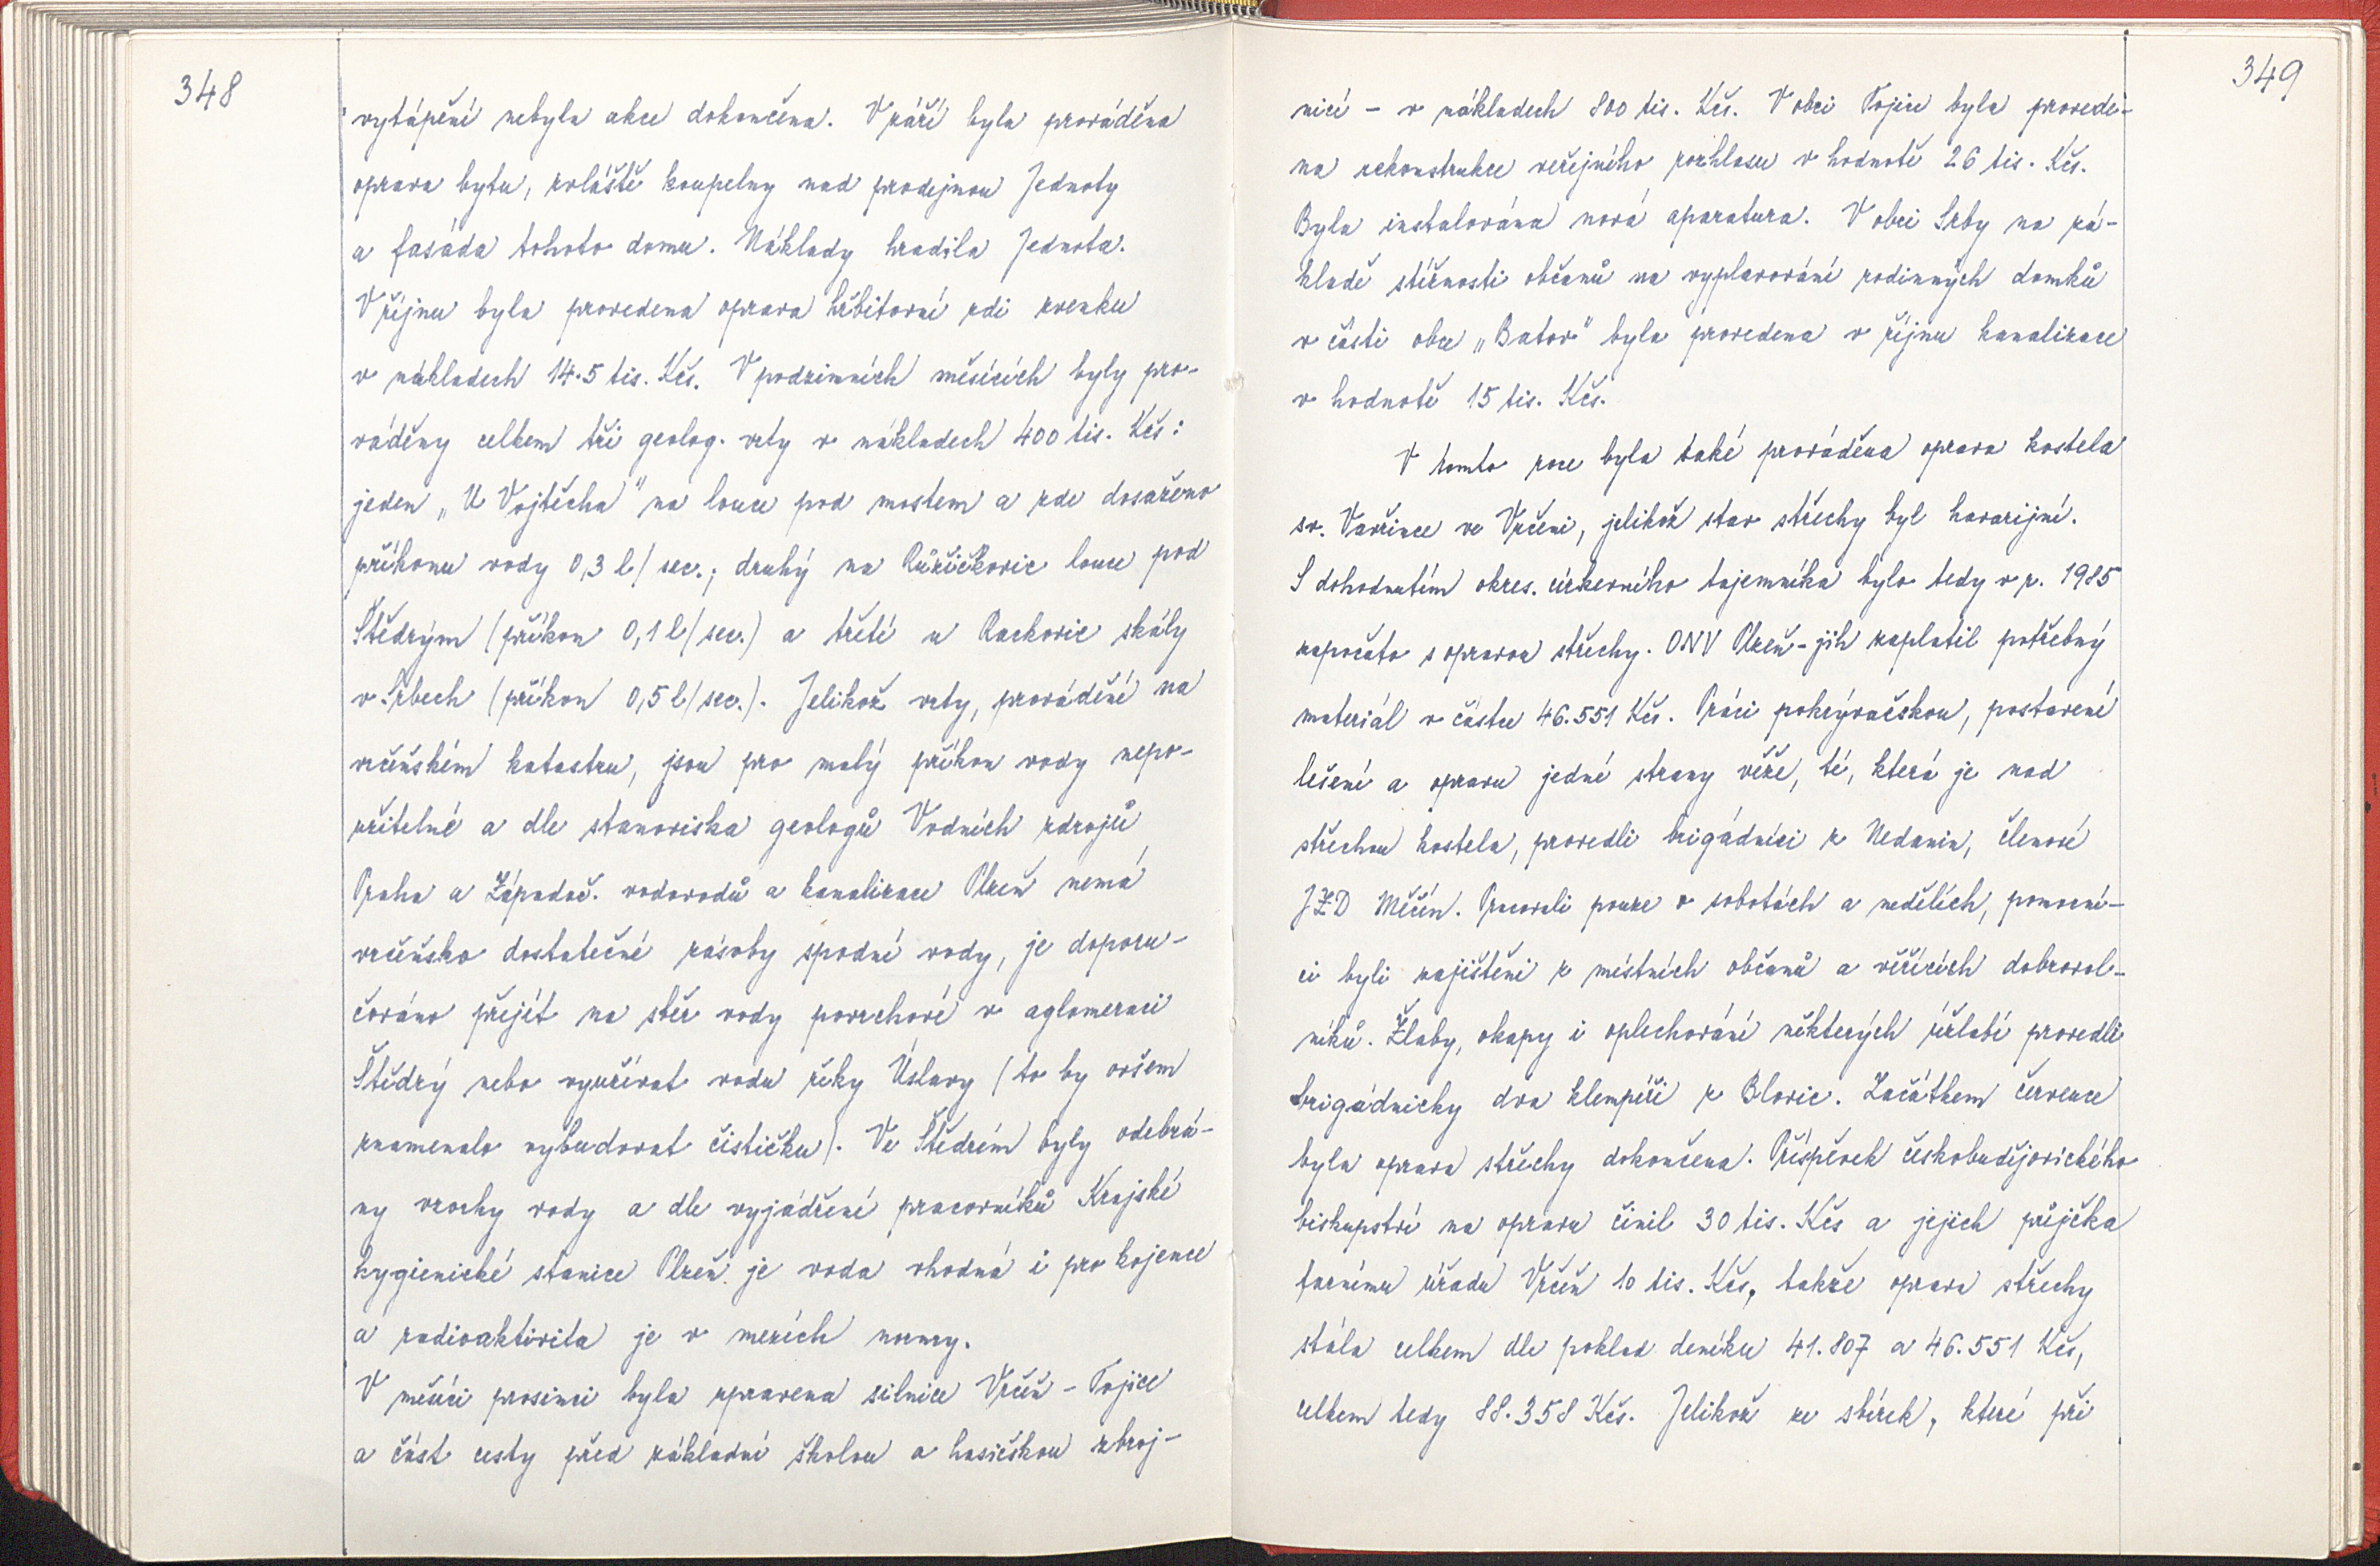 348
vytápění nebyla akce dokončena. V září byla prováděna
oprava bytu, zvláště koupelny nad prodejnou Jednoty
a fasáda tohoto domu. Náklady hradila Jednota.
V říjnu byla provedena oprava hřbitovní zdi zvenku
v nákladech 14.5 tis. Kčs. V podzimních měsících byly pro-
váděny celkem tři geolog. vrty v nákladech 400 tis. Kčs:
jeden „U Vojtěcha" na louce pod mostem a zde dosaženo
příkonu vody 0,3 l/sec.; druhý na Růžičkovic louce pod
Štědrým (příkon 0,1 l/sec.) a třetí u Rackovic skály
v Srbech (příkon 0,5 l/sec.). Jelikož vrty, provádění na
vrčeňském katastru, jsou pro malý příkon vody nepo-
užitelné a dle stanoviska geologů Vodních zdrojů
Praha a Západoč. vodovodů a kanalizace Plzeň nemá
vrčeňsko dostatečné zásoby spodní vody, je doporu-
čováno přejít na sběr vody povrchové v aglomeraci
Štědrý nebo využívat vodu řeky Úslavy (to by ovšem
znamenalo vybudovat čističku). Ve Štědrém byly odebrá-
ny vzorky vody a dle vyjádření pracovníků Krajské
hygienické stanice Plzeň je voda vhodná i pro kojence
a radioaktivita je v mezích normy.
V měsíci prosinci byla upravena silnice Vrčeň - Tojice
a část cesty před základní školou a hasičskou zbroj-
349
nicí - v nákladech 800 tis. Kčs. V obci Tojice byla provede-
na rekonstrukce veřejného rozhlasu v hodnotě 26 tis. Kčs.
Byla instalována nová aparatura. V obci Srby na zá-
kladě stížnosti občanů na vyplavování rodinných domků
v části obce „Batov" byla provedena v říjnu kanalizace
v hodnotě 15 tis. Kčs.
V tomto roce byla také prováděna oprava kostela
sv. Vavřince ve Vrčeni, jelikož stav střechy byl havarijní.
S dohodnutím okres. církevního tajemníka bylo tedy v r. 1985
započato s opravou střechy. ONV Plzeň-jih zaplatil potřebný
materiál v částce 46.551 Kčs. Práci pokrývačskou, postavení
lešení a opravu jedné strany věže, té, která je nad
střechou kostela, provedli brigádníci z Nedanin, členové
JZD Měčín. Pracovali pouze o sobotách a nedělích, pomocní-
ci byli zajištěni z místních občanů a věřících dobrovol-
níků. Žlaby, okapy i oplechování některých úžlabí provedli
brigádnicky dva klempíři z Blovic. Začátkem července
byla oprava střechy dokončena. Příspěvek českobudějovického
biskupství na opravu činil 30 tis. Kčs a jejich půjčka
farnímu úřadu Vrčeň 10 tis. Kčs, takže oprava střechy
stála celkem dle poklad. deníku 41.807 a 46.551 Kčs,
celkem tedy 88.358 Kčs. Jelikož ze sbírek, které při